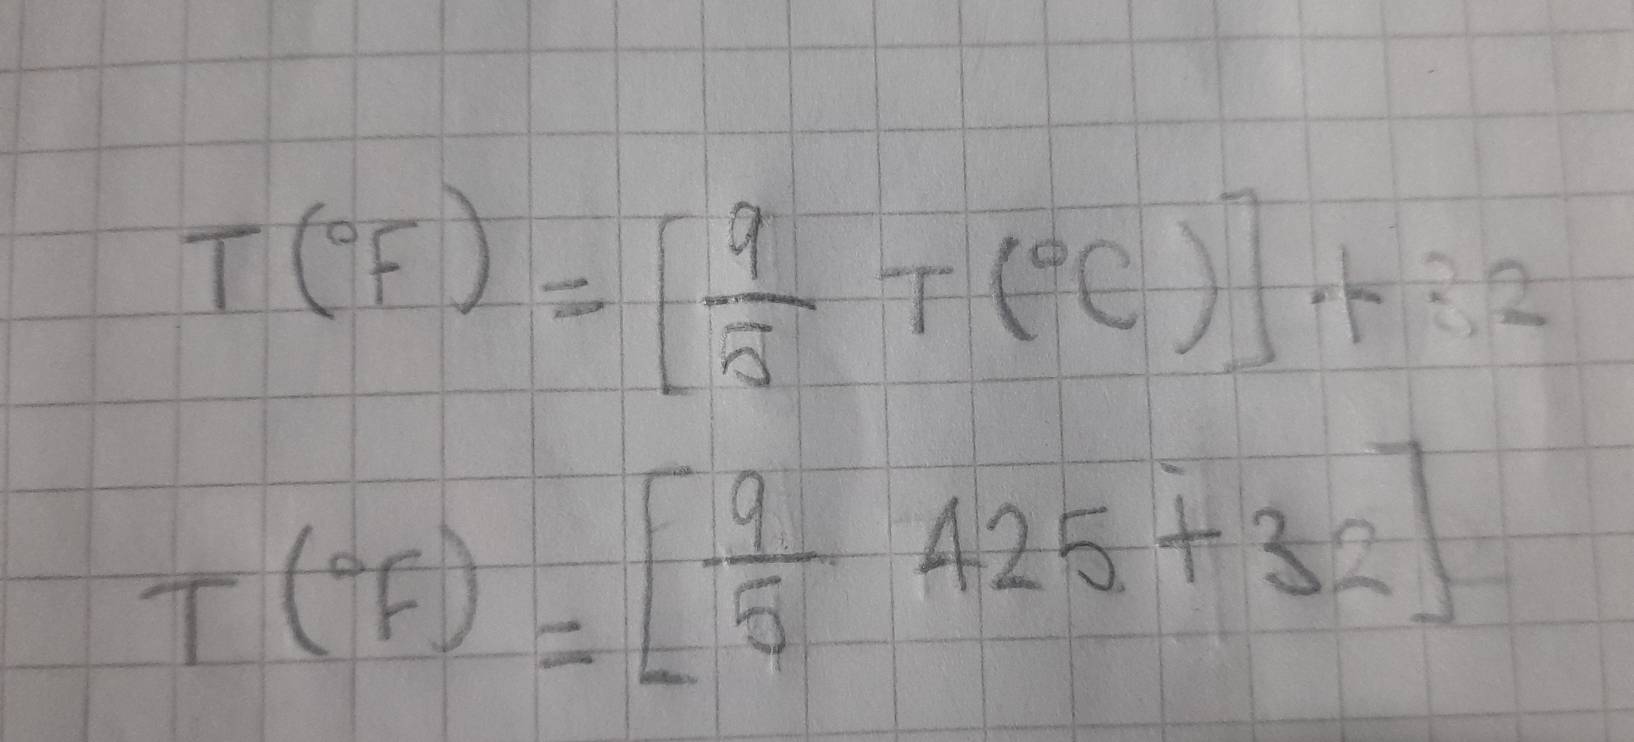 T(°F) = [9/5 T(°C)] + 32
T(°F) = [9/5 425 + 32]